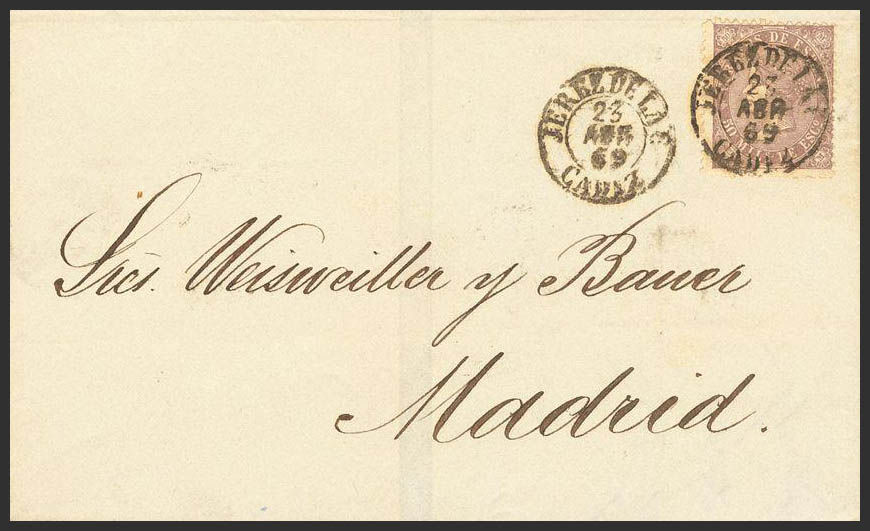 JEREZ DE LA F.
23
ABR
69
CADIZ
JEREZ DE LA F.
23
ABR
69
CADIZ
50 MILS. DE ESC.
Sres. Weisweiller y Bauer
Madrid.